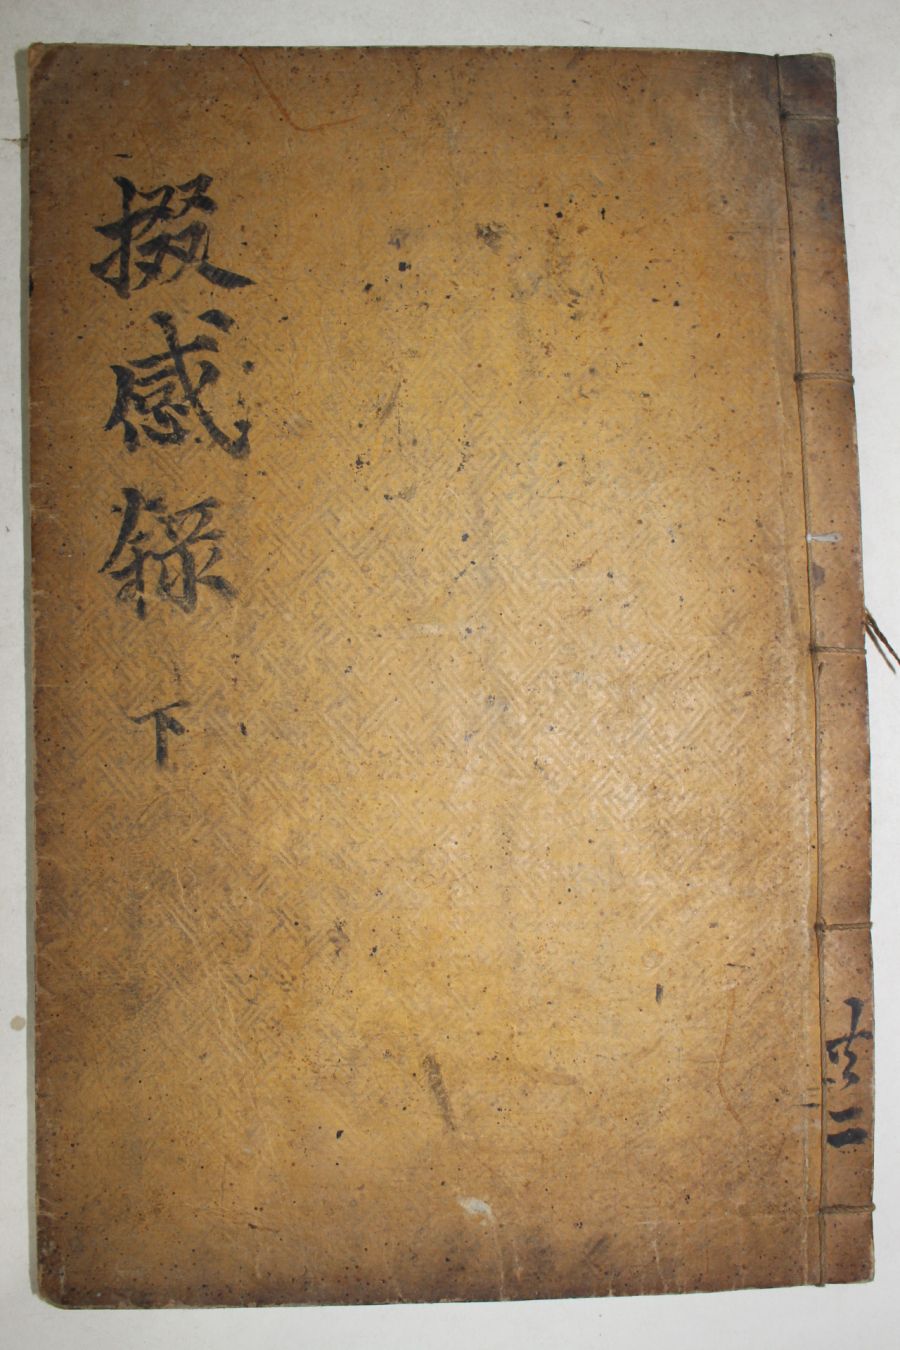 掇感錄 下
共二